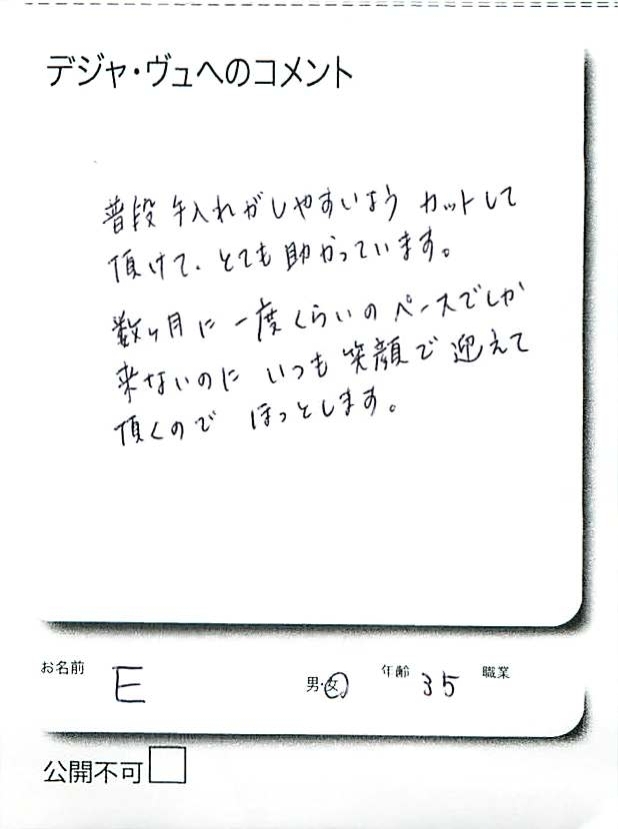 デジャ・ヴュへのコメント
普段 手入れがしやすいよう カットして
頂けて、とても助かっています。
数ヶ月に一度くらいのペースでしか
来ないのに いつも笑顔で迎えて
頂くので ほっとします。
お名前 E 男・女 年齢 35 職業
公開不可